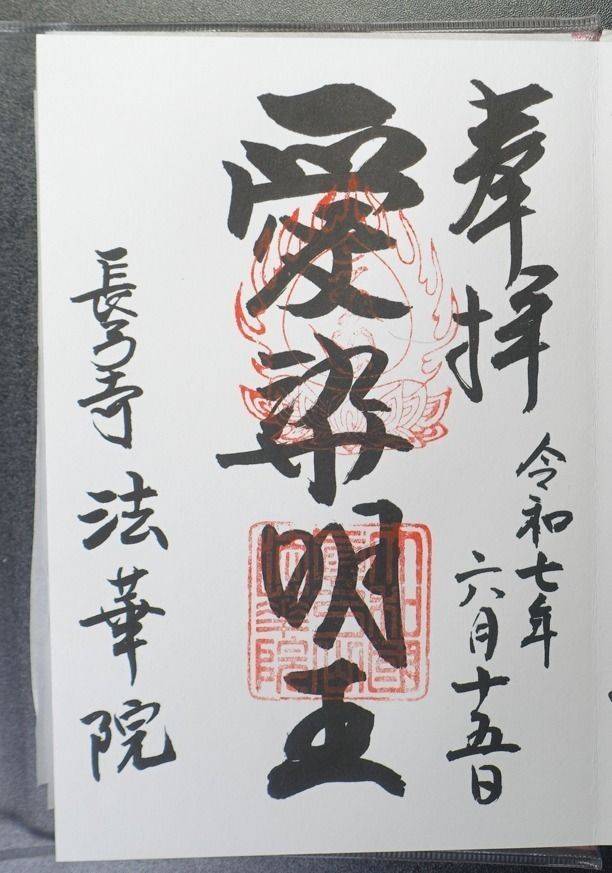 奉拝
令和七年
六月十五日
愛染明王
長弓寺 法華院